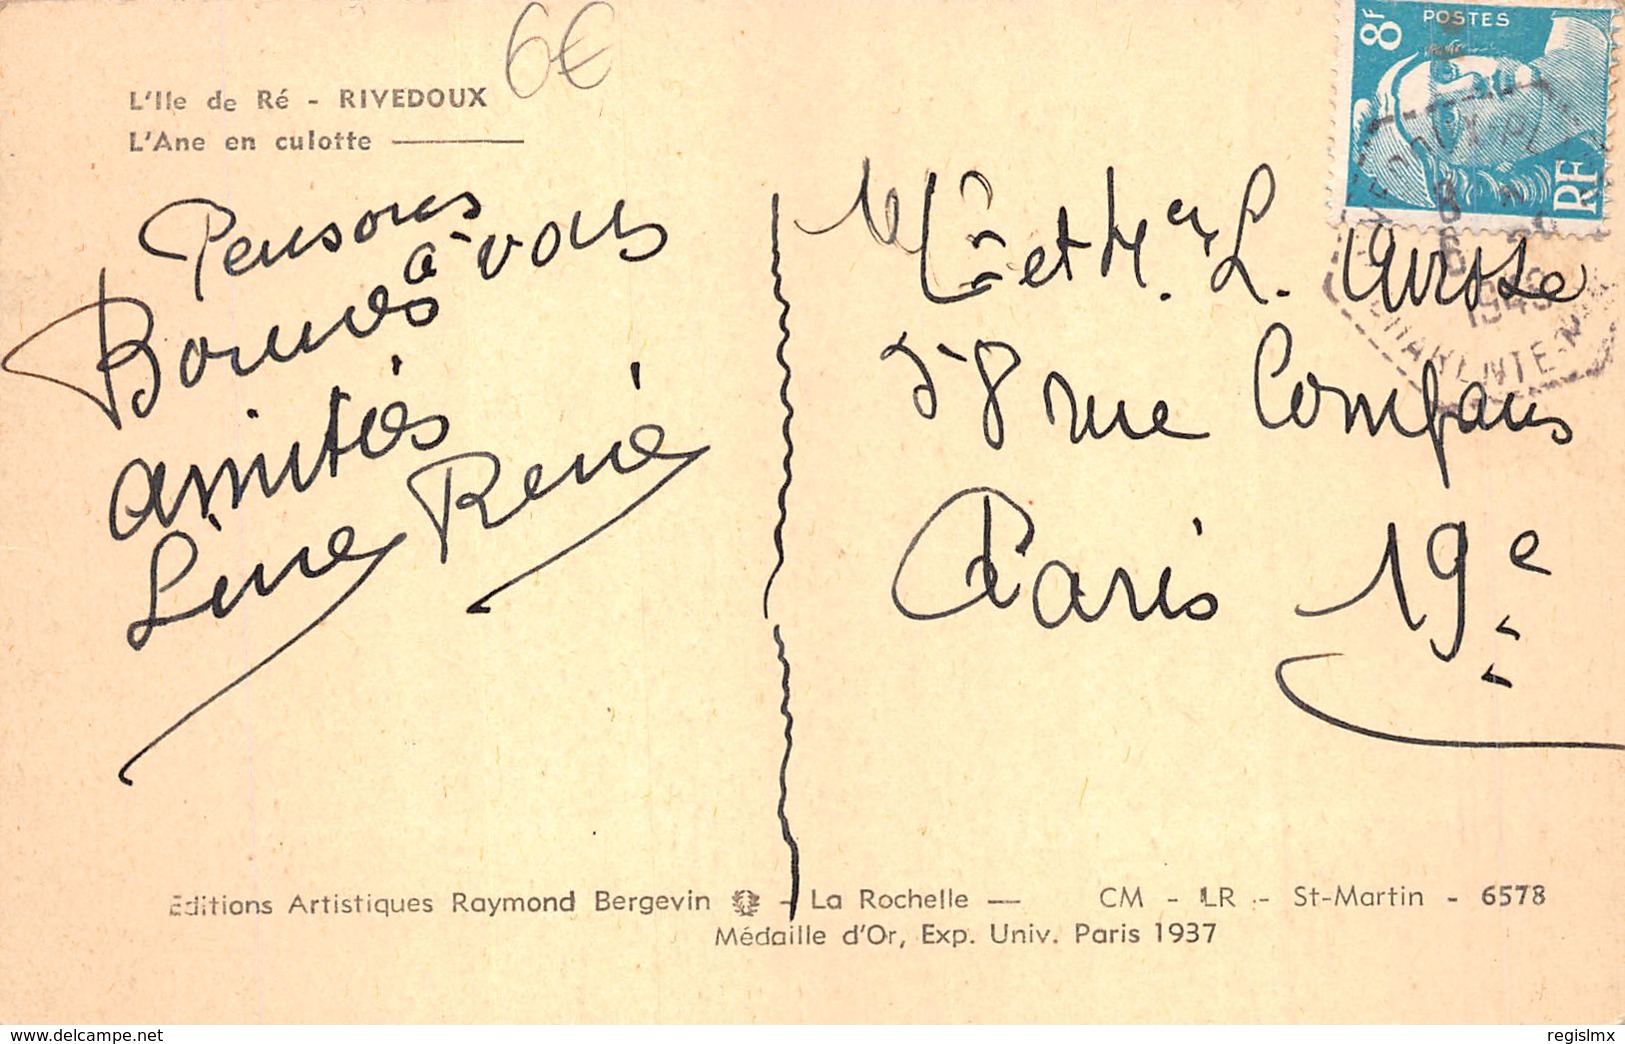 6€
L'Ile de Ré - RIVEDOUX
L'Ane en culotte
Pensons
à vous
Bonnes
amitiés
Line René
8F
POSTES
RF
1949
CHARENTE-
et L.
58 rue Compans
Paris 19e
Editions Artistiques Raymond Bergevin - La Rochelle — CM - LR - St-Martin - 6578
Médaille d'Or, Exp. Univ. Paris 1937
www.delcampe.net
regislmx